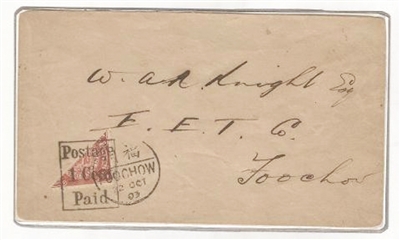 W. A. R. Knight Esq
I. E. T. Co.
Foochow
Postage
1 Cent
Paid
FOOCHOW
OCT
03